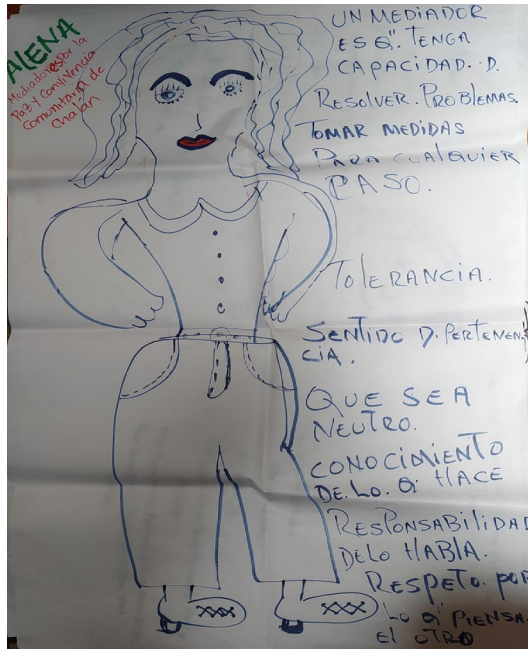 ALENA
Mediadores por la
Paz y Convivencia
Comunitaria de
Chalán
UN MEDIADOR
ES Q". TENGA
CAPACIDAD. D.
RESOLVER. PROBLEMAS.
TOMAR MEDIDAS
PARA CUALQUIER
CASO.
TOLERANCIA.
SENTIDO D. PERTENEN.
CIA.
QUE SEA
NEUTRO.
CONOCIMIENTO
DE. LO. Q. HACE
RESPONSABILIDAD
DELO HABLA.
RESPETO. POR
LO Q" PIENSA.
EL OTRO